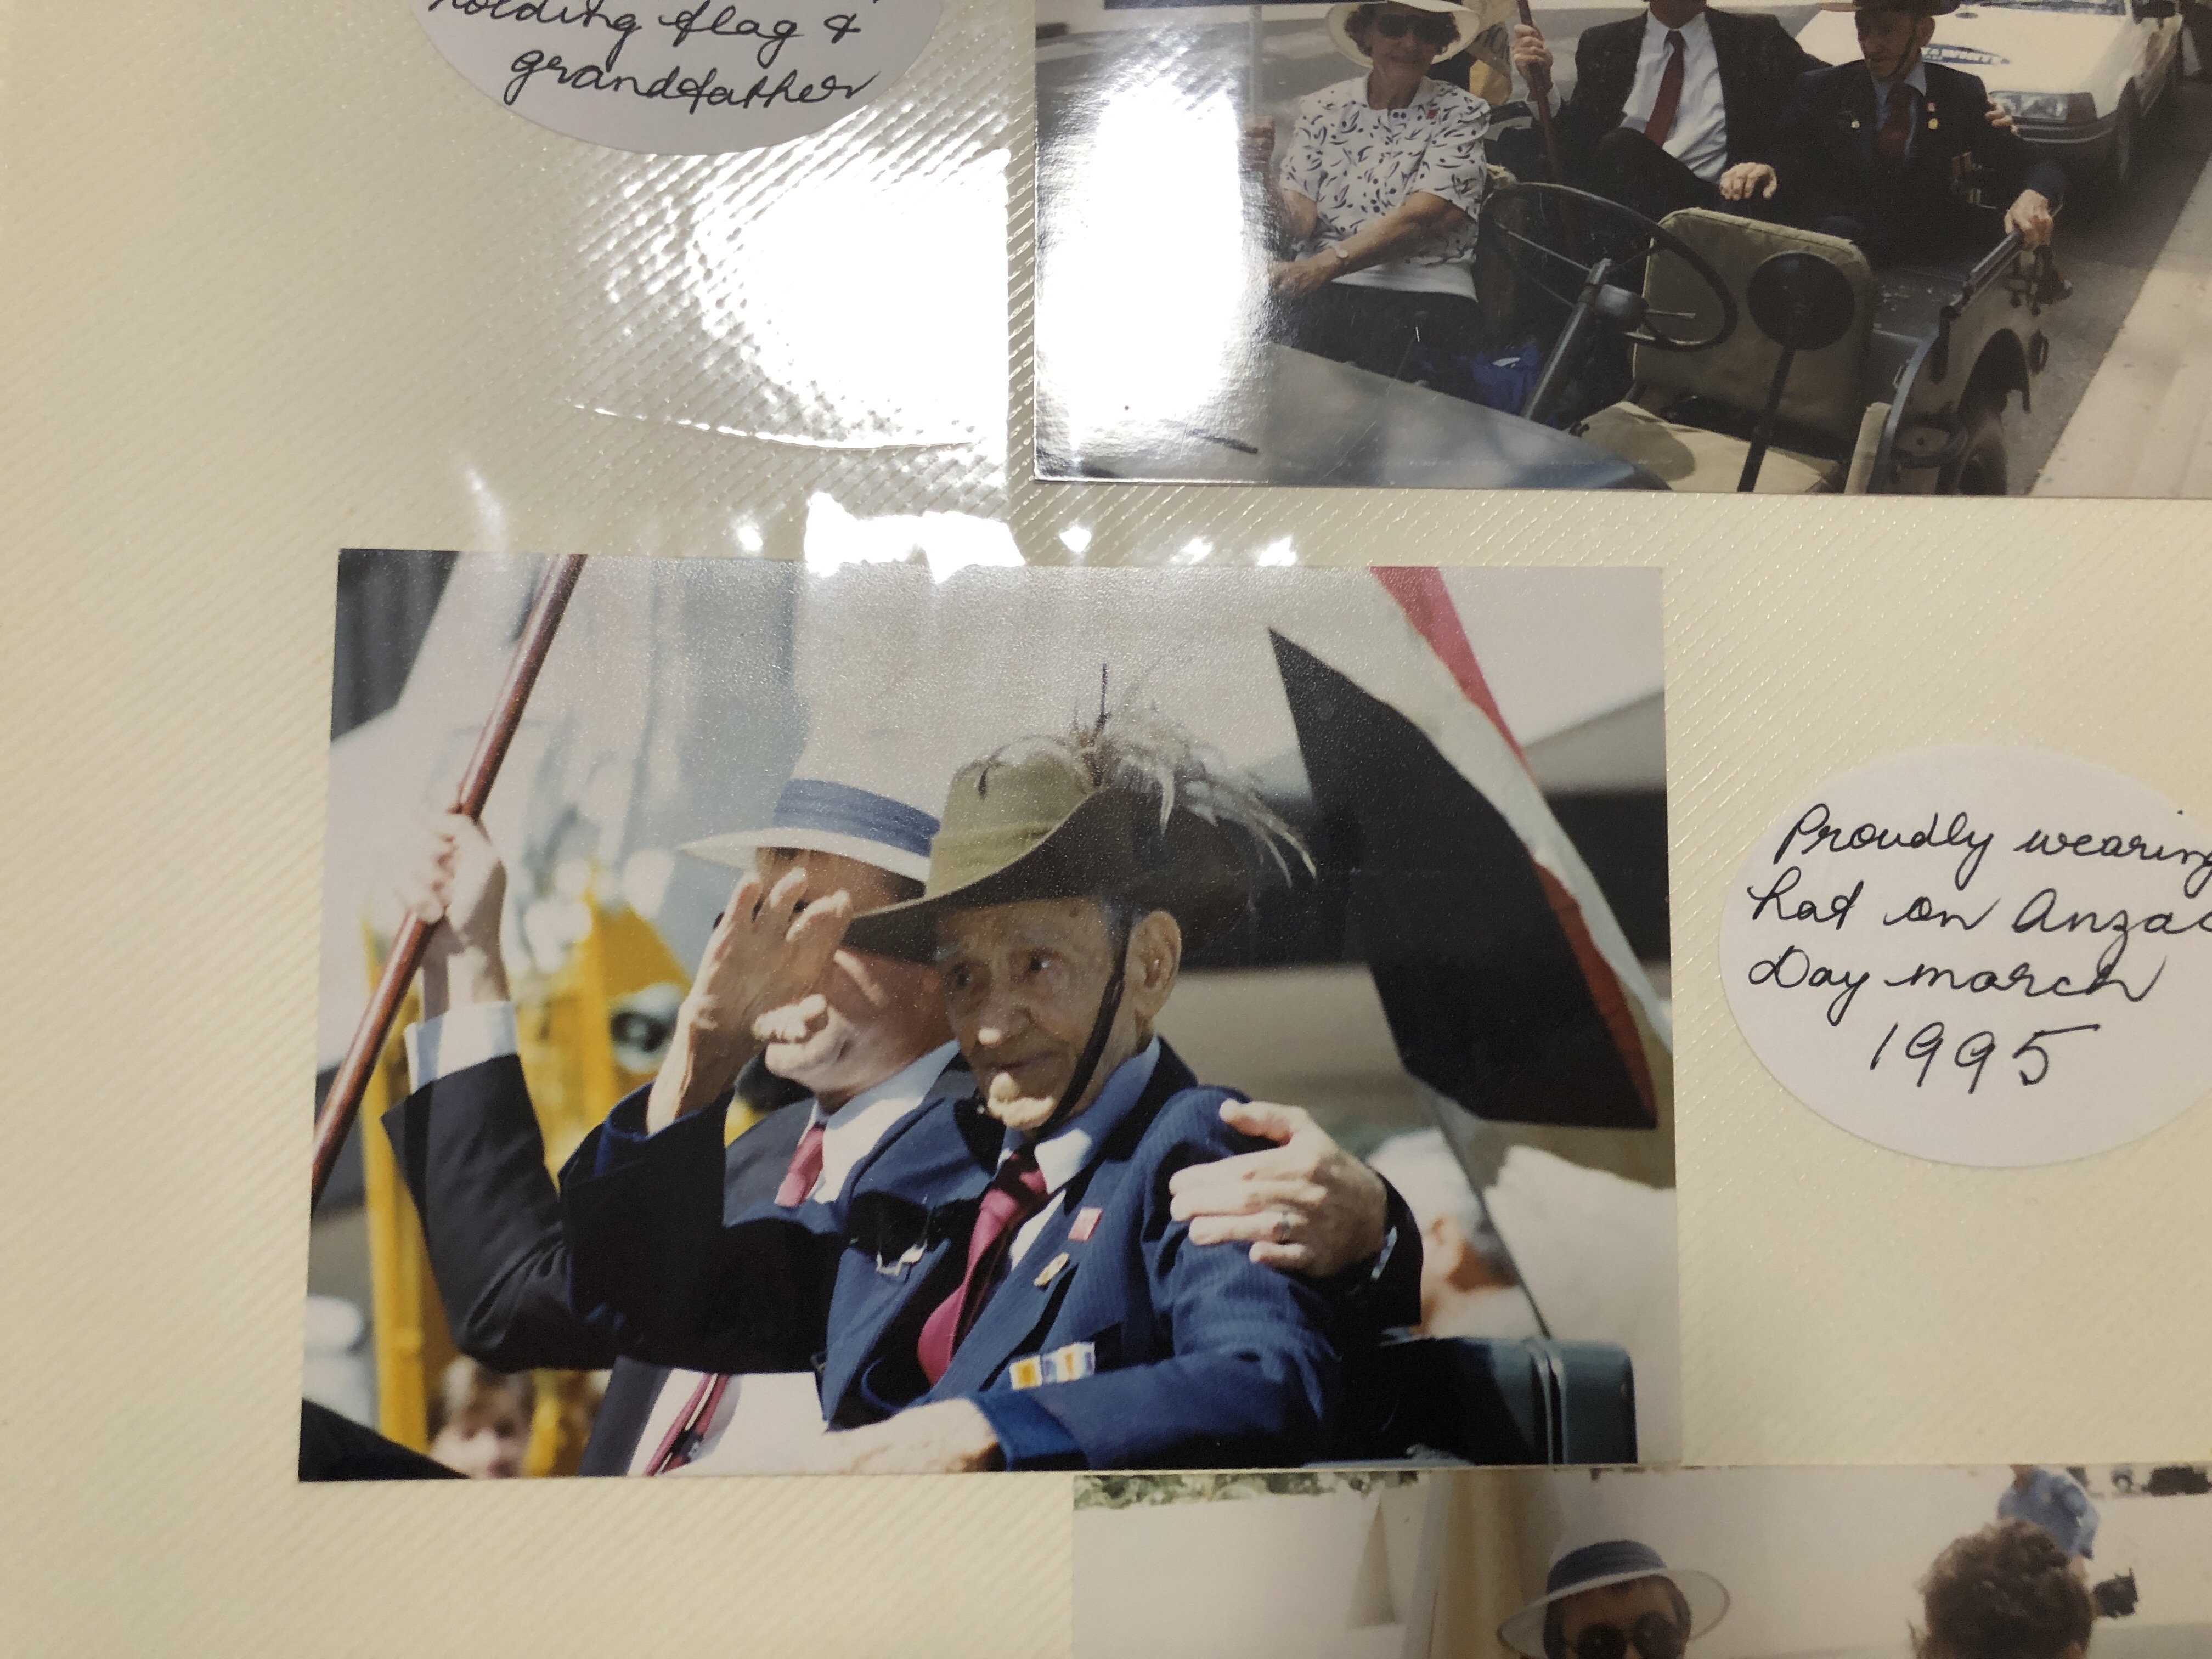 holding flag &
grandfather
Proudly wearing
hat on Anzac
Day march
1995